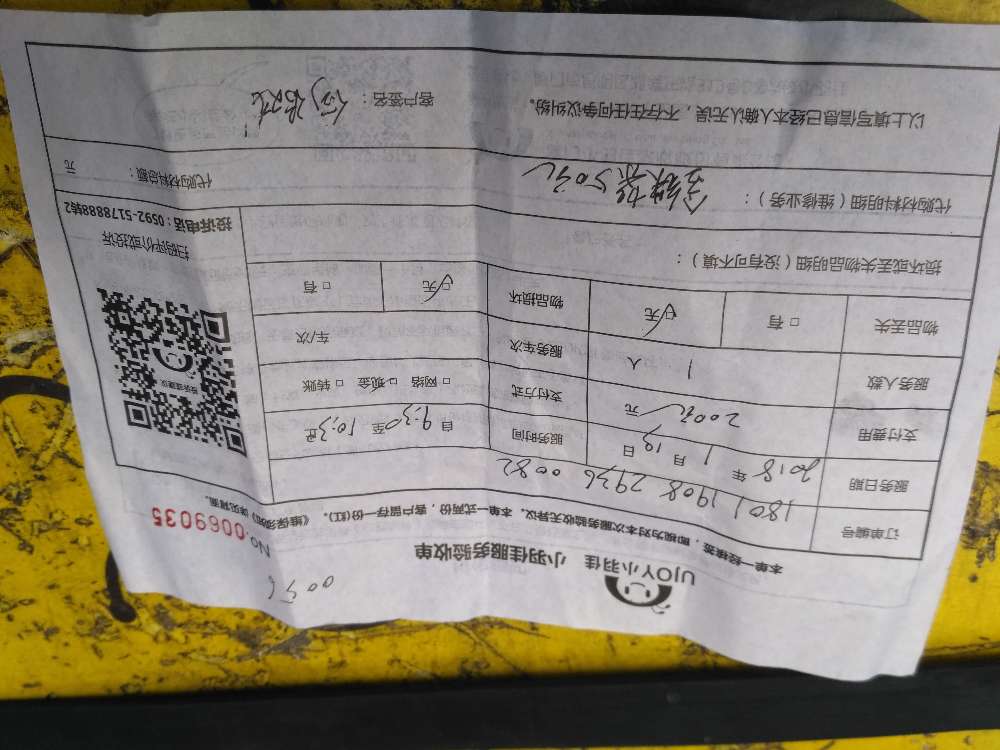 0056
UJOY小羽佳 小羽佳服务验收单
No. 0069035
本单一经接签，即视为对本次服务验收无异议。本单一式两份，客户留存一份(红)。《维保须知》详见背面。
订单编号 1801 1908 2936 0082
服务日期 2018 年 1 月 19 日 服务时间 自 9:30 至 10:30
支付费用 200元 元 支付方式 □ 网络 □ 现金 □ 转账
服务人数 1 人 服务车次 车/次
物品丢失 □ 有 □ 无 物品损坏 □ 无 □ 有
损坏或丢失物品明细（没有可不填）：
扫码评价或投诉
投诉电话：0592-5178888转2
代购材料明细（维修业务）： 50元 代购材料总额： 元
以上填写信息已经本人确认无误，不存在任何争议纠纷。 客户签名：